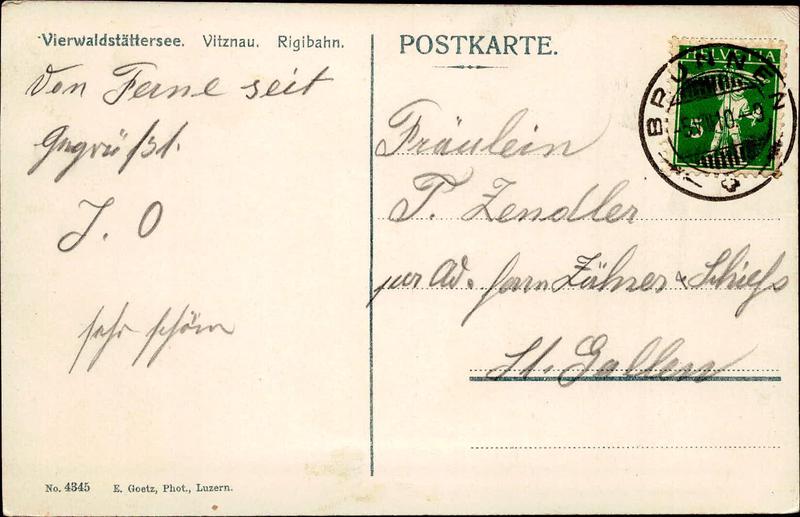 Vierwaldstättersee. Vitznau. Rigibahn.
Von Ferne seit
gegrüßt.
J. O
sehr schön
No. 4345 E. Goetz, Phot., Luzern.
POSTKARTE.
HELVETIA
5
BRUNNEN
Fräulein
T. Zendler
per Ad. Herrn Zähner & Schieß
St. Gallen